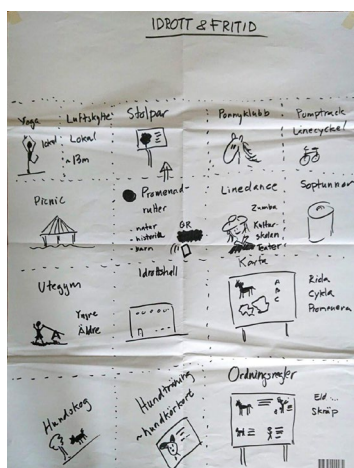 IDROTT & FRITID
Yoga
lokal
Luftskytte
Lokal
~ 13m
Stolpar
Ponnyklubb
Pumptrack
Linecykel
Picnic
Promenad-
rutter
- natur
- historia
- barn
QR
Linedance
Zumba
Kultur-
skolan
Teater
Soptunnor
Utegym
Yngre
Äldre
Idrottshall
Karta
A
B
C
Rida
Cykla
Promenera
Hundskog
Hundträning
~hundkörkort
Ordningsregler
Eld...
Skräp